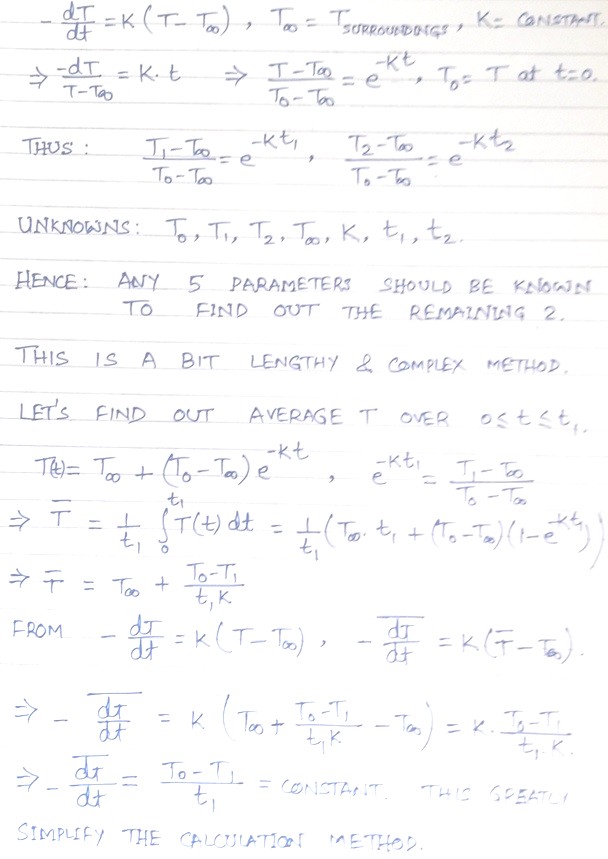 - dT/dt = K (T - T∞) , T∞ = T SURROUNDINGS , K = CONSTANT.
⇒ -dT/T-T∞ = K·t ⇒ T-T∞/T₀-T∞ = e^-Kt , T₀ = T at t=0.
THUS : T₁-T∞/T₀-T∞ = e^-Kt₁ , T₂-T∞/T₀-T∞ = e^-Kt₂
UNKNOWNS: T₀, T₁, T₂, T∞, K, t₁, t₂.
HENCE: ANY 5 PARAMETERS SHOULD BE KNOWN
TO FIND OUT THE REMAINING 2.
THIS IS A BIT LENGTHY & COMPLEX METHOD.
LET'S FIND OUT AVERAGE T OVER 0≤t≤t₁.
T(t) = T∞ + (T₀-T∞) e^-Kt , e^-Kt₁ = T₁-T∞/T₀-T∞
⇒ T̄ = 1/t₁ ∫₀^t₁ T(t) dt = 1/t₁ (T∞·t₁ + (T₀-T∞)(1-e^-Kt₁))
⇒ T̄ = T∞ + T₀-T₁/t₁K
FROM - dT/dt = K (T-T∞) , - \overline{dT/dt} = K (T̄-T∞).
⇒ - \overline{dT/dt} = K (T∞ + T₀-T₁/t₁K - T∞) = K· T₀-T₁/t₁·K.
⇒ - \overline{dT/dt} = T₀-T₁/t₁ = CONSTANT. THIS GREATLY
SIMPLIFY THE CALCULATION METHOD.